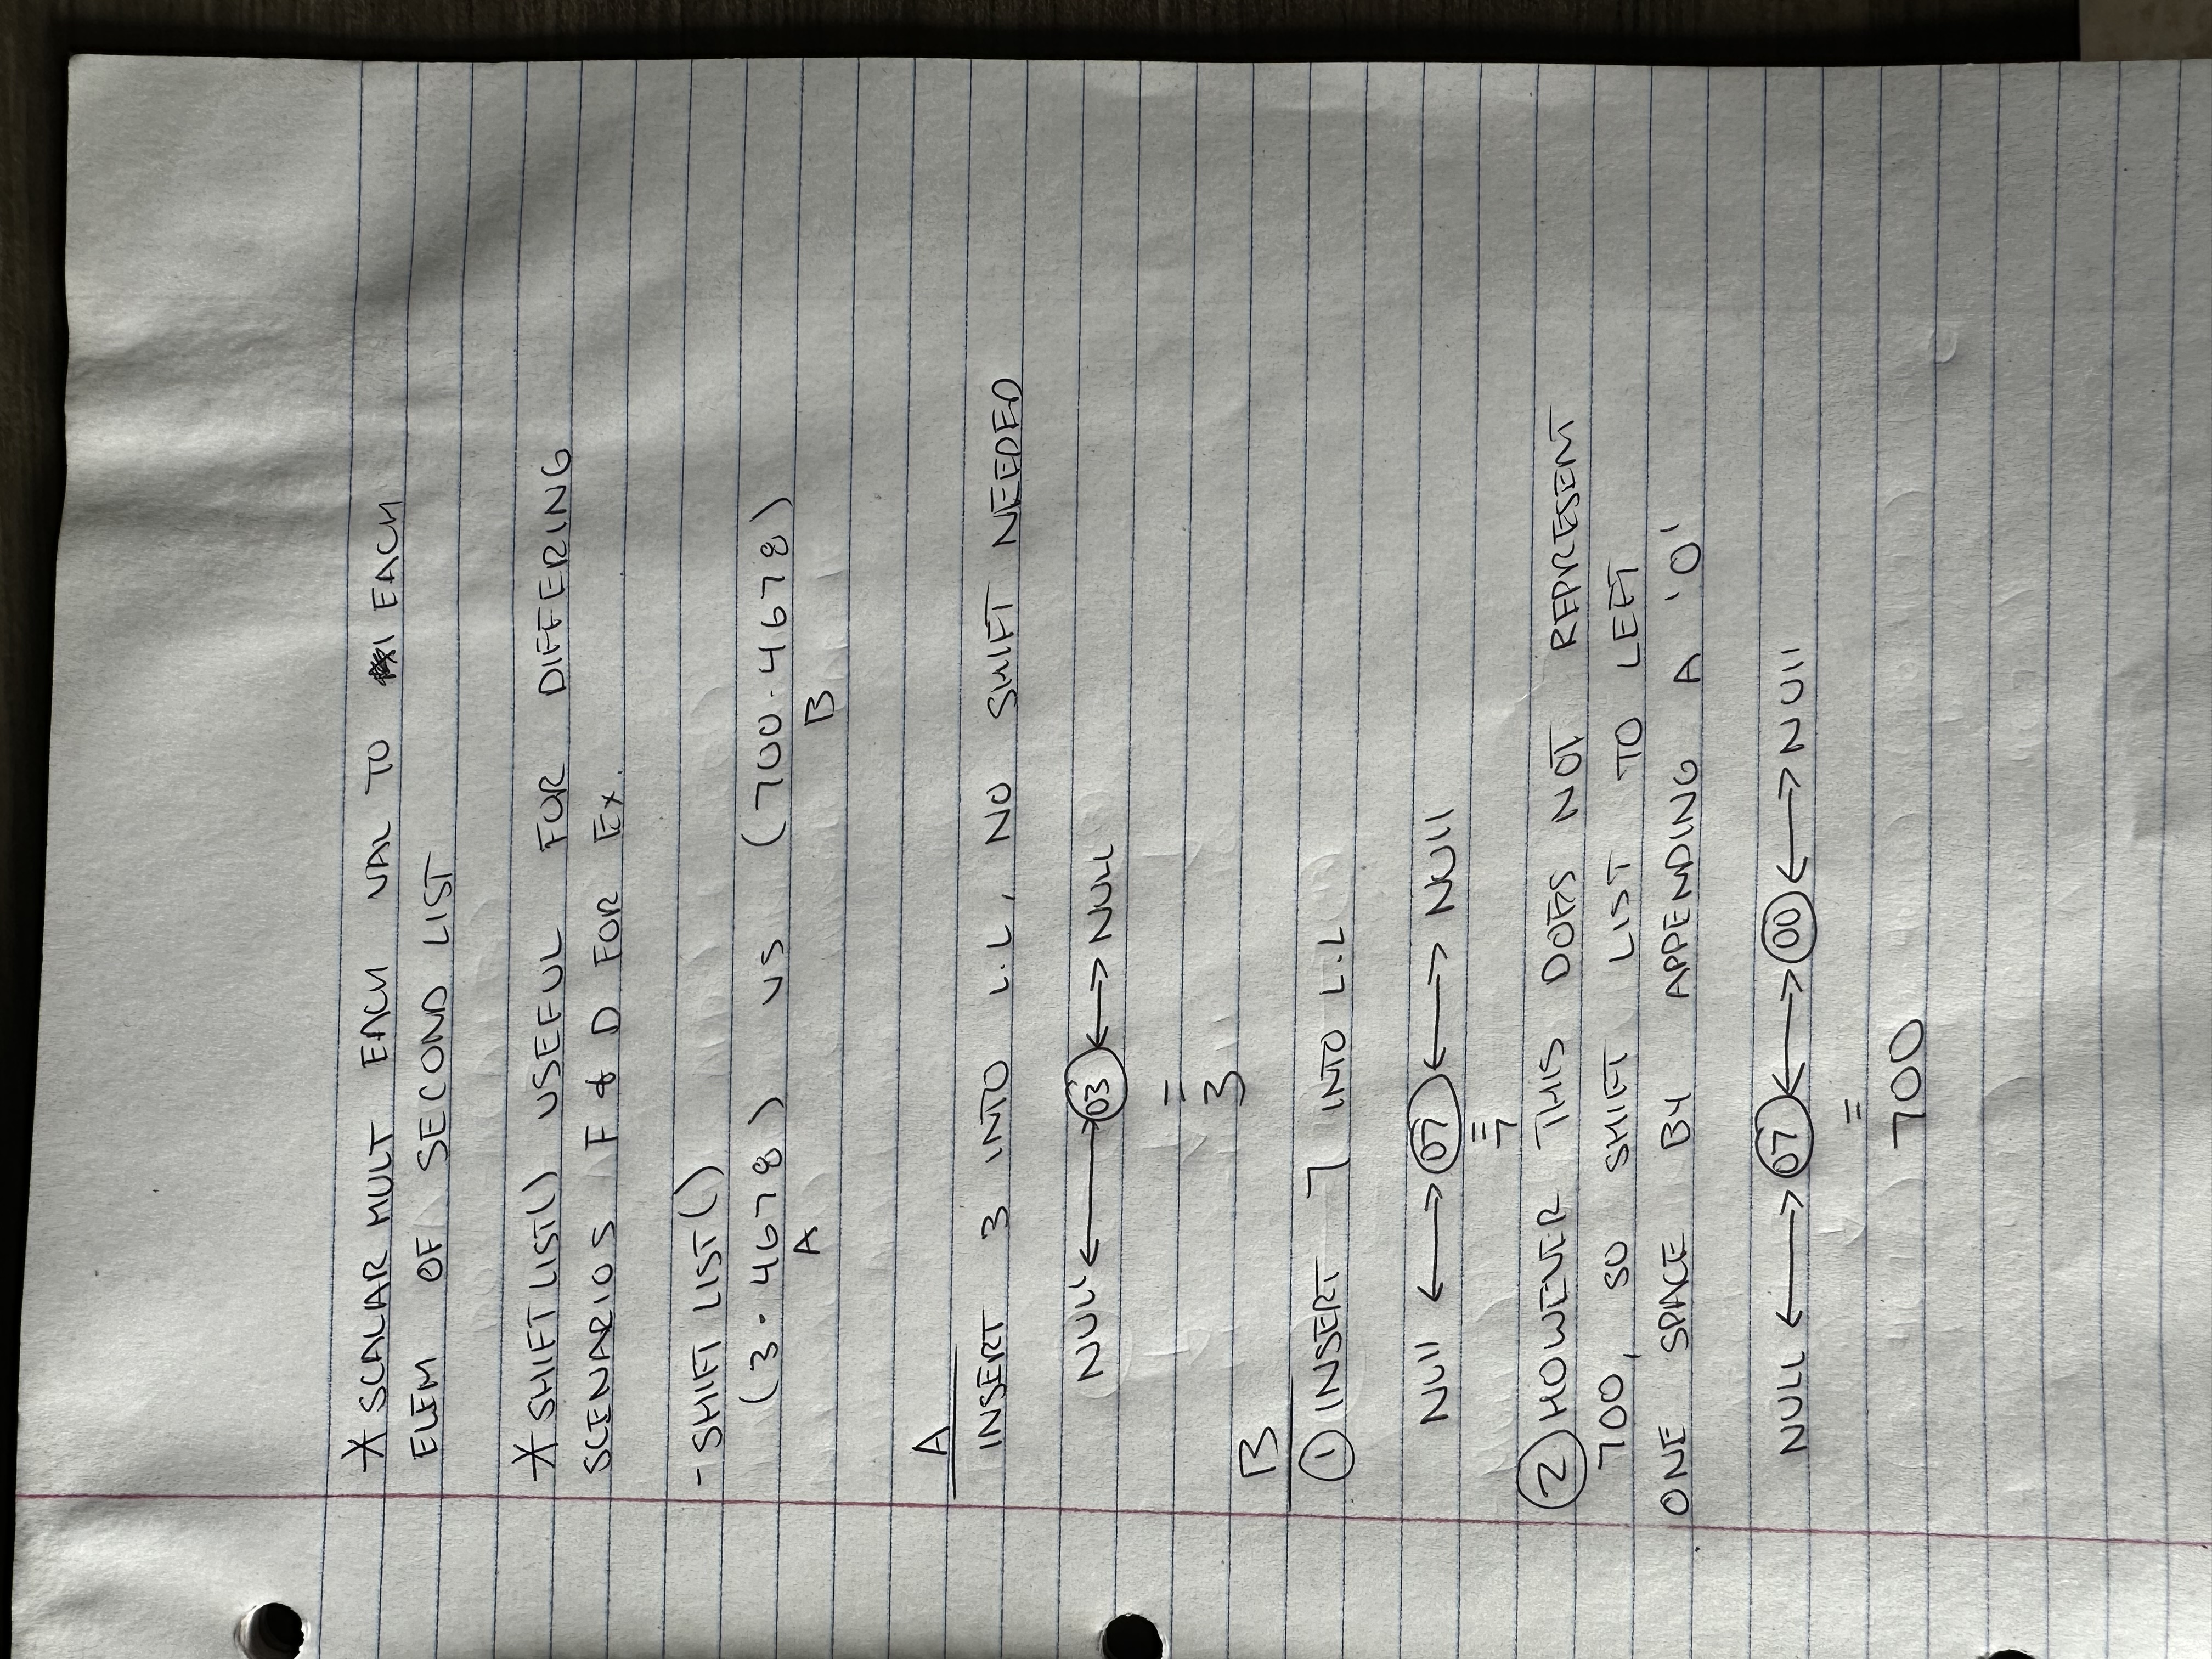 * SCALAR MULT EACH VAL TO EACH
ELEM OF SECOND LIST
* SHIFT LIST() USEFUL FOR DIFFERING
SCENARIOS F & D FOR Ex.
- SHIFT LIST()
(3 · 4678) VS (700 · 4678)
A B
A
INSERT 3 INTO L.L, NO SHIFT NEEDED
NULL <-> 03 <-> NULL
=
3
B
① INSERT 7 INTO L.L
NUll <-> 07 <-> NUll
=
7
② HOWEVER THIS DOES NOT REPRESENT
700, SO SHIFT LIST TO LEFT
ONE SPACE BY APPENDING A '0'
NULL <-> 07 <-> 00 <-> NUll
=
700